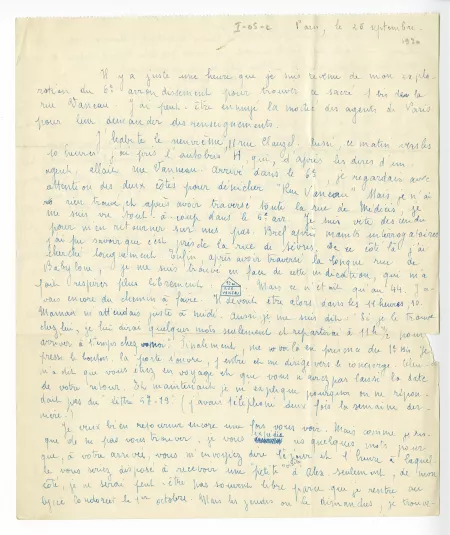 I-05-2 Paris, le 26 septembre
1930
Il y a juste une heure que je suis revenu de mon explo-
ration du 6e arrondissement pour trouver ce sacré 1 bis de la
rue Vaneau. J'ai peut-être ennuyé la moitié des agents de Paris
pour leur demander des renseignements.
J'habite le neuvième, 11 rue Clauzel. Aussi, ce matin vers les
10 heures, j'ai pris l'autobus H, qui, d'après les dires d'un
agent, allait rue Vaneau. Arrivé dans le 6e, je regardais avec
attention des deux côtés pour dénicher "Rue Vaneau". Mais je n'ai
rien trouvé et après avoir traversé toute la rue de Médicis, je
me suis vu tout-à-coup dans le 5e arr. Je suis vite descendu
pour m'en retourner sur mes pas. Bref après maints interrogatoires
j'ai pu savoir que c'est près de la rue de Sèvres. De ce côté là j'ai
cherché longuement. Enfin, après avoir traversé la longue rue de
Babylone, je me suis trouvé en face de cette indication, qui m'a
fait respirer plus librement : Rue Vaneau. Mais ce n'était qu'au 44. J'a-
vais encore du chemin à faire. Il devait être alors dans les 11 heures 10.
Maman m'attendait juste à midi. Aussi je me suis dit : Si je le trouve
chez lui, je lui dirai quelques mots seulement et repartirai à 11h ½ pour
arriver à temps chez nous. Finalement, me voilà en présence du 1 bis. Je
presse le bouton, la porte s'ouvre, j'entre et me dirige vers le concierge. Celui-ci
m'a dit que vous êtes en voyage et que vous n'avez pas laissé la date
de votre retour. Eh maintenant je m'explique pourquoi on ne répon-
dait pas du Littré 57-19 (j'avais téléphoné deux fois la semaine der-
nière)!
Je veux bien retourner encore une fois vous voir. Mais comme je ris-
que de ne pas vous trouver, je vous envoie ces quelques mots pour
que, à votre arrivée, vous m'envoyiez dire le jour et l'heure à laquel-
le vous serez disposé à recevoir une petite visite d'Alex. Seulement, de mon
côté, je ne serai peut-être pas souvent libre parce que je rentre au
lycée Condorcet le 1er octobre. Mais les jeudis ou le dimanche, je trouve-